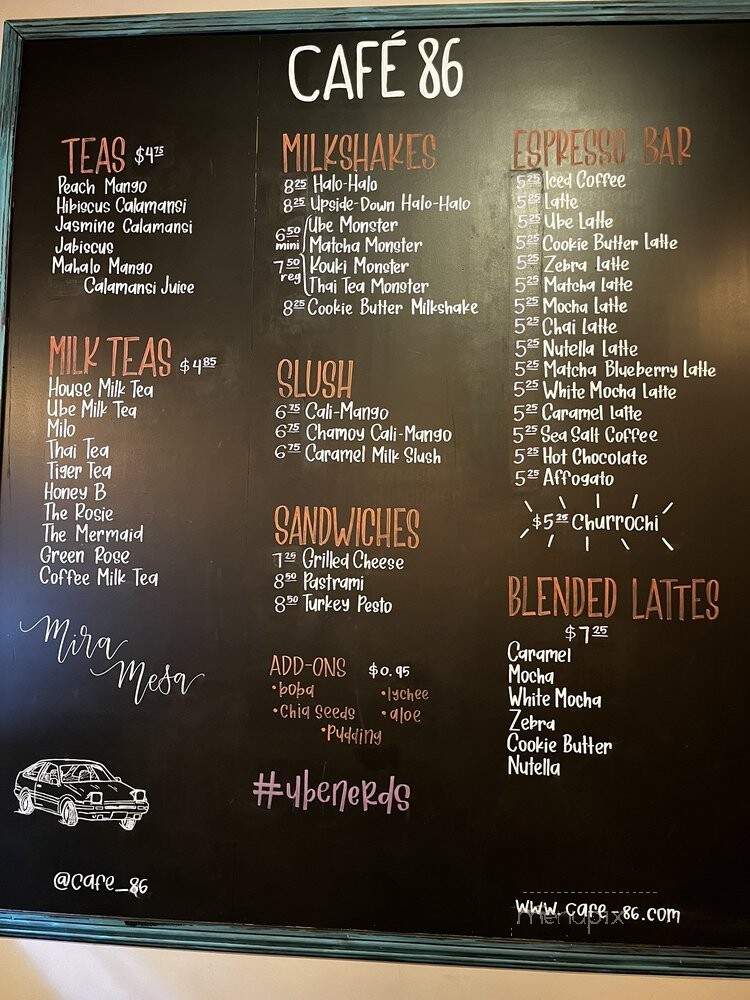 CAFÉ 86
TEAS $4.75
Peach Mango
Hibiscus Calamansi
Jasmine Calamansi
Jabiscus
Mahalo Mango
Calamansi Juice
MILK TEAS $4.85
House Milk Tea
Ube Milk Tea
Milo
Thai Tea
Tiger Tea
Honey B
The Rosie
The Mermaid
Green Rose
Coffee Milk Tea
Mira
Mesa
@cafe_86
MILKSHAKES
8.25 Halo-Halo
8.25 Upside-Down Halo-Halo
6.50 mini
7.50 reg
Ube Monster
Matcha Monster
Kouki Monster
Thai Tea Monster
8.25 Cookie Butter Milkshake
SLUSH
6.75 Cali-Mango
6.75 Chamoy Cali-Mango
6.75 Caramel Milk Slush
SANDWICHES
7.25 Grilled Cheese
8.50 Pastrami
8.50 Turkey Pesto
ADD-ONS $0.95
•boba •lychee
•Chia Seeds •aloe
•Pudding
#ubenerds
ESPRESSO BAR
5.25 Iced Coffee
5.25 Latte
5.25 Ube Latte
5.25 Cookie Butter Latte
5.25 Zebra Latte
5.25 Matcha Latte
5.25 Mocha Latte
5.25 Chai Latte
5.25 Nutella Latte
5.25 Matcha Blueberry Latte
5.25 White Mocha Latte
5.25 Caramel Latte
5.25 Sea Salt Coffee
5.25 Hot Chocolate
5.25 Affogato
$5.25 Churrochi
BLENDED LATTES
$7.25
Caramel
Mocha
White Mocha
Zebra
Cookie Butter
Nutella
www.cafe-86.com
menupix